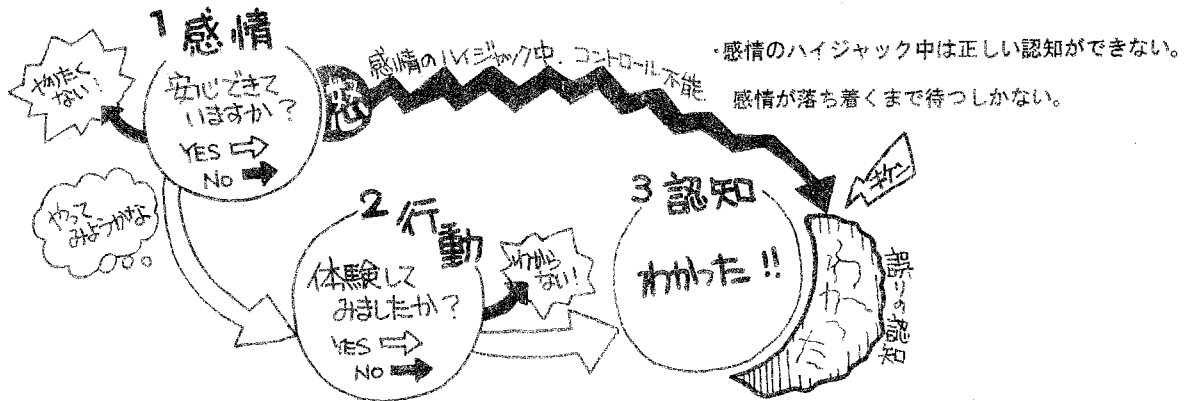 1 感情
安心できて
いますか?
YES ⇨
NO ➡
やりたく
ない!
怒
感情のハイジャック中、コントロール不能
・感情のハイジャック中は正しい認知ができない。
感情が落ち着くまで待つしかない。
やって
みようかな
2 行動
体験して
みましたか?
YES ⇨
NO ➡
わから
ない!
3 認知
わかった!!
キケン
わかった
誤りの認知